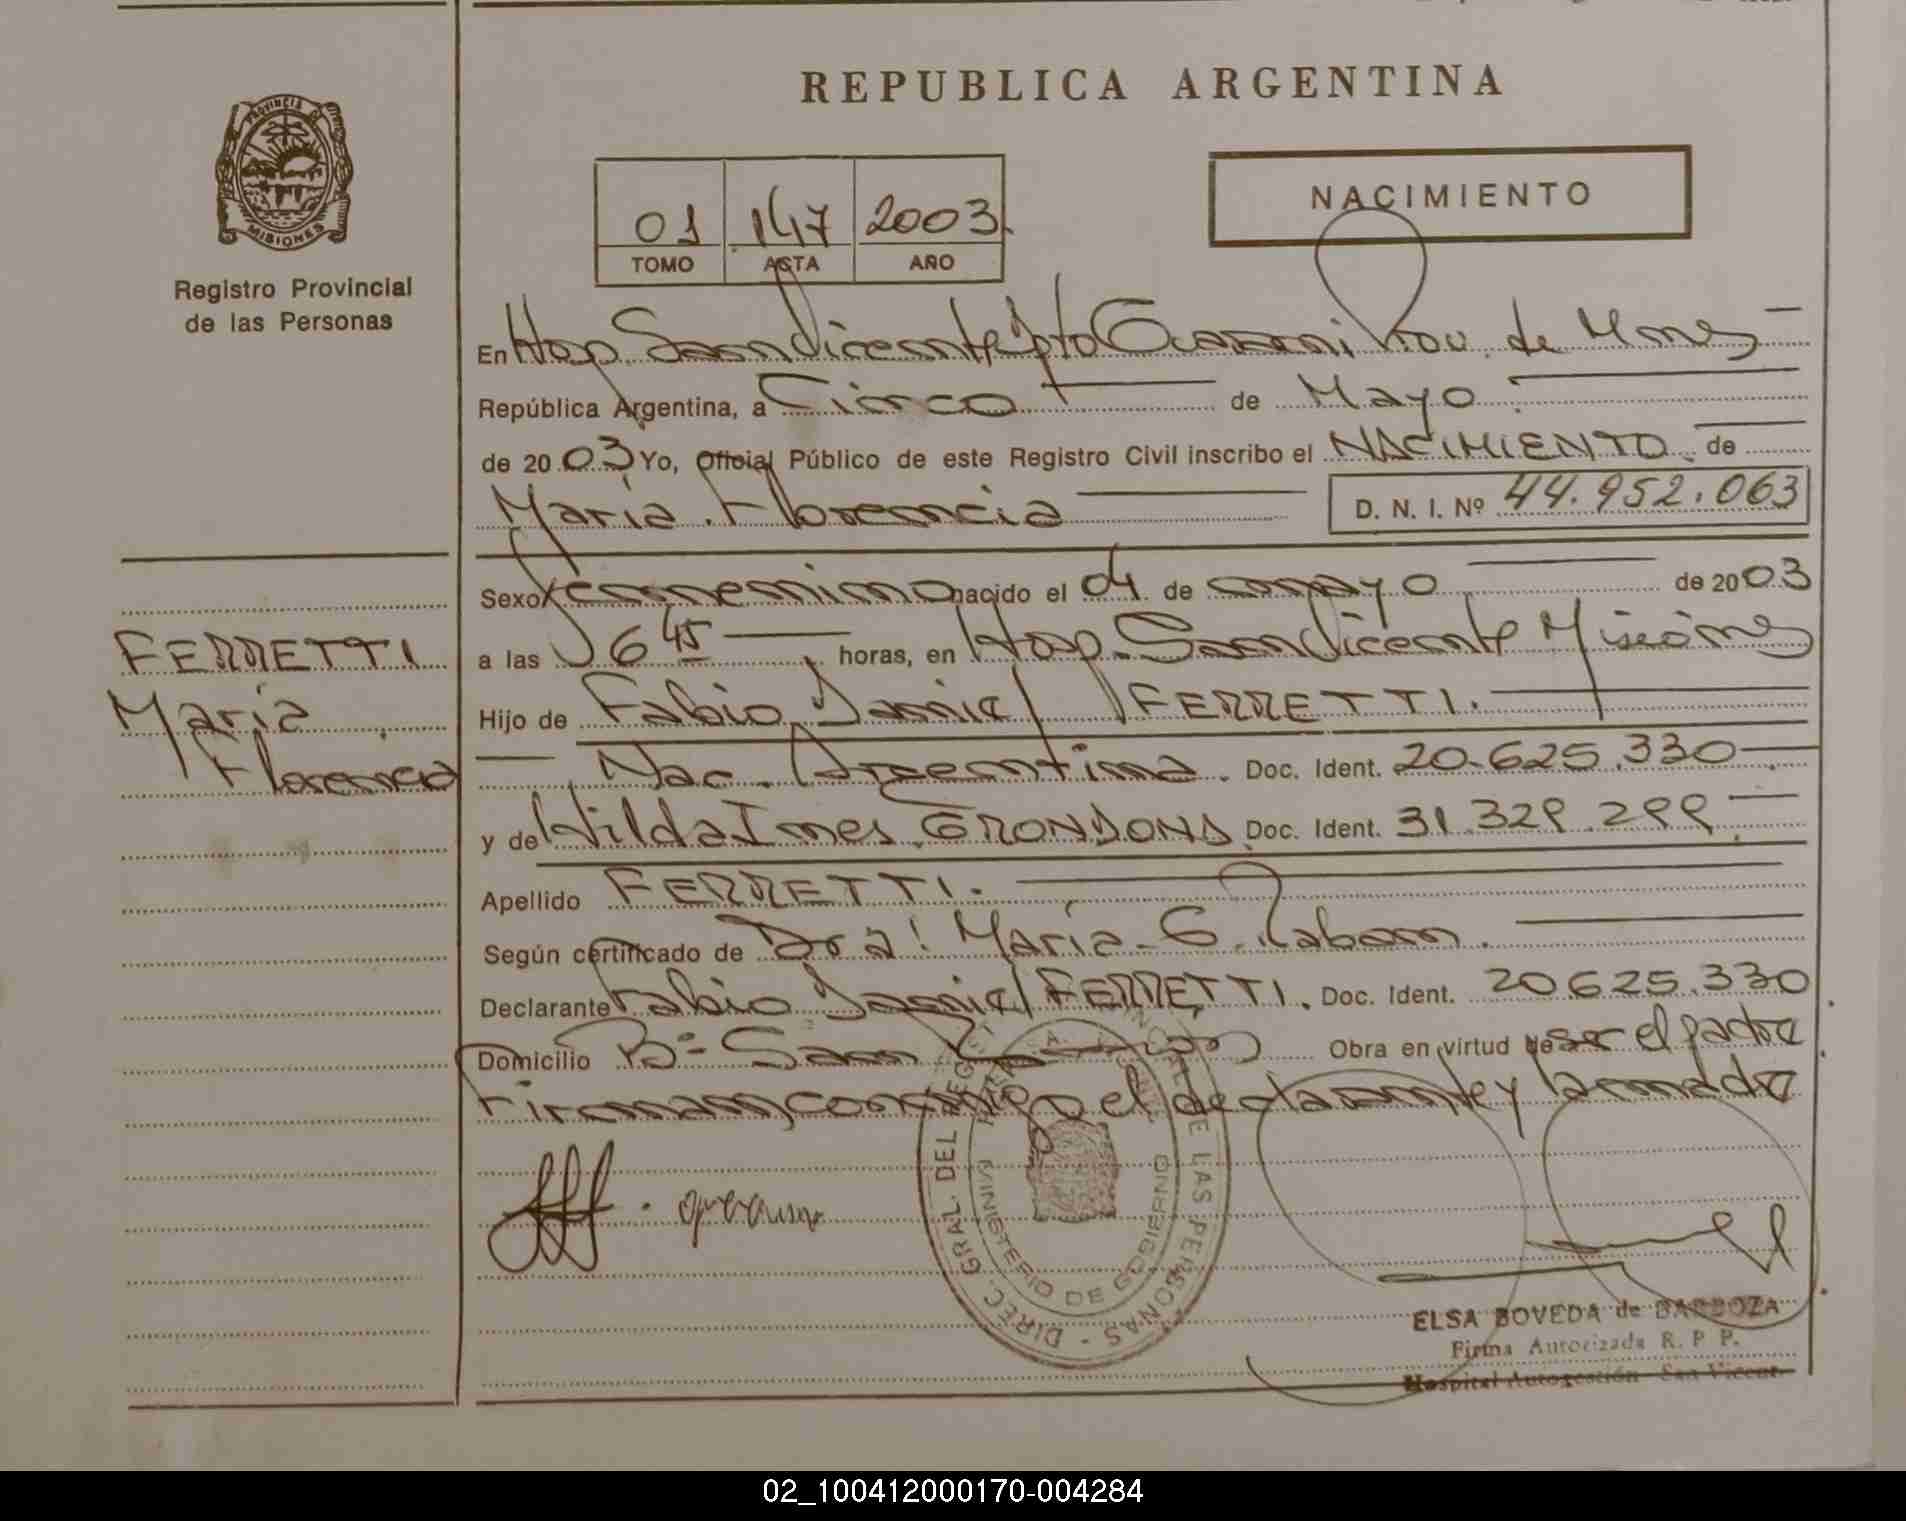 REPUBLICA ARGENTINA
PROVINCIA DE MISIONES
Registro Provincial
de las Personas
01 147 2003
TOMO ACTA AÑO
NACIMIENTO
En Hosp. San Vicente Dpto Guarani Prov. de Mnes
República Argentina, a Cinco de Mayo
de 2003 Yo, Oficial Público de este Registro Civil inscribo el NACIMIENTO de
Maria Florencia D. N. I. Nº 44.952.063
Sexo femenino nacido el 04 de mayo de 2003
FERRETTI
Maria
Florencia
a las 6 45 horas, en Hosp. San Vicente Misiones
Hijo de Fabio Daniel FERRETTI.
Nac. Argentina. Doc. Ident. 20.625.330
y de Hilda Ines Doc. Ident. 31.329.299
Apellido FERRETTI.
Según certificado de Dra. Maria G.
Declarante Fabio Daniel FERRETTI. Doc. Ident. 20625.330
Domicilio Bº San Obra en virtud de ser el padre
Firman conmigo el declarante y la madre
DIREC. GRAL. DEL REGISTRO PROVINCIAL DE LAS PERSONAS
MINISTERIO DE GOBIERNO
ELSA BOVEDA de BARBOZA
Firma Autorizada R. P. P.
Hospital Autogestión San Vicente
02_100412000170-004284